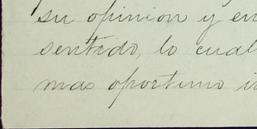 su opinion y en
sentido, lo cual
mas oportuno i